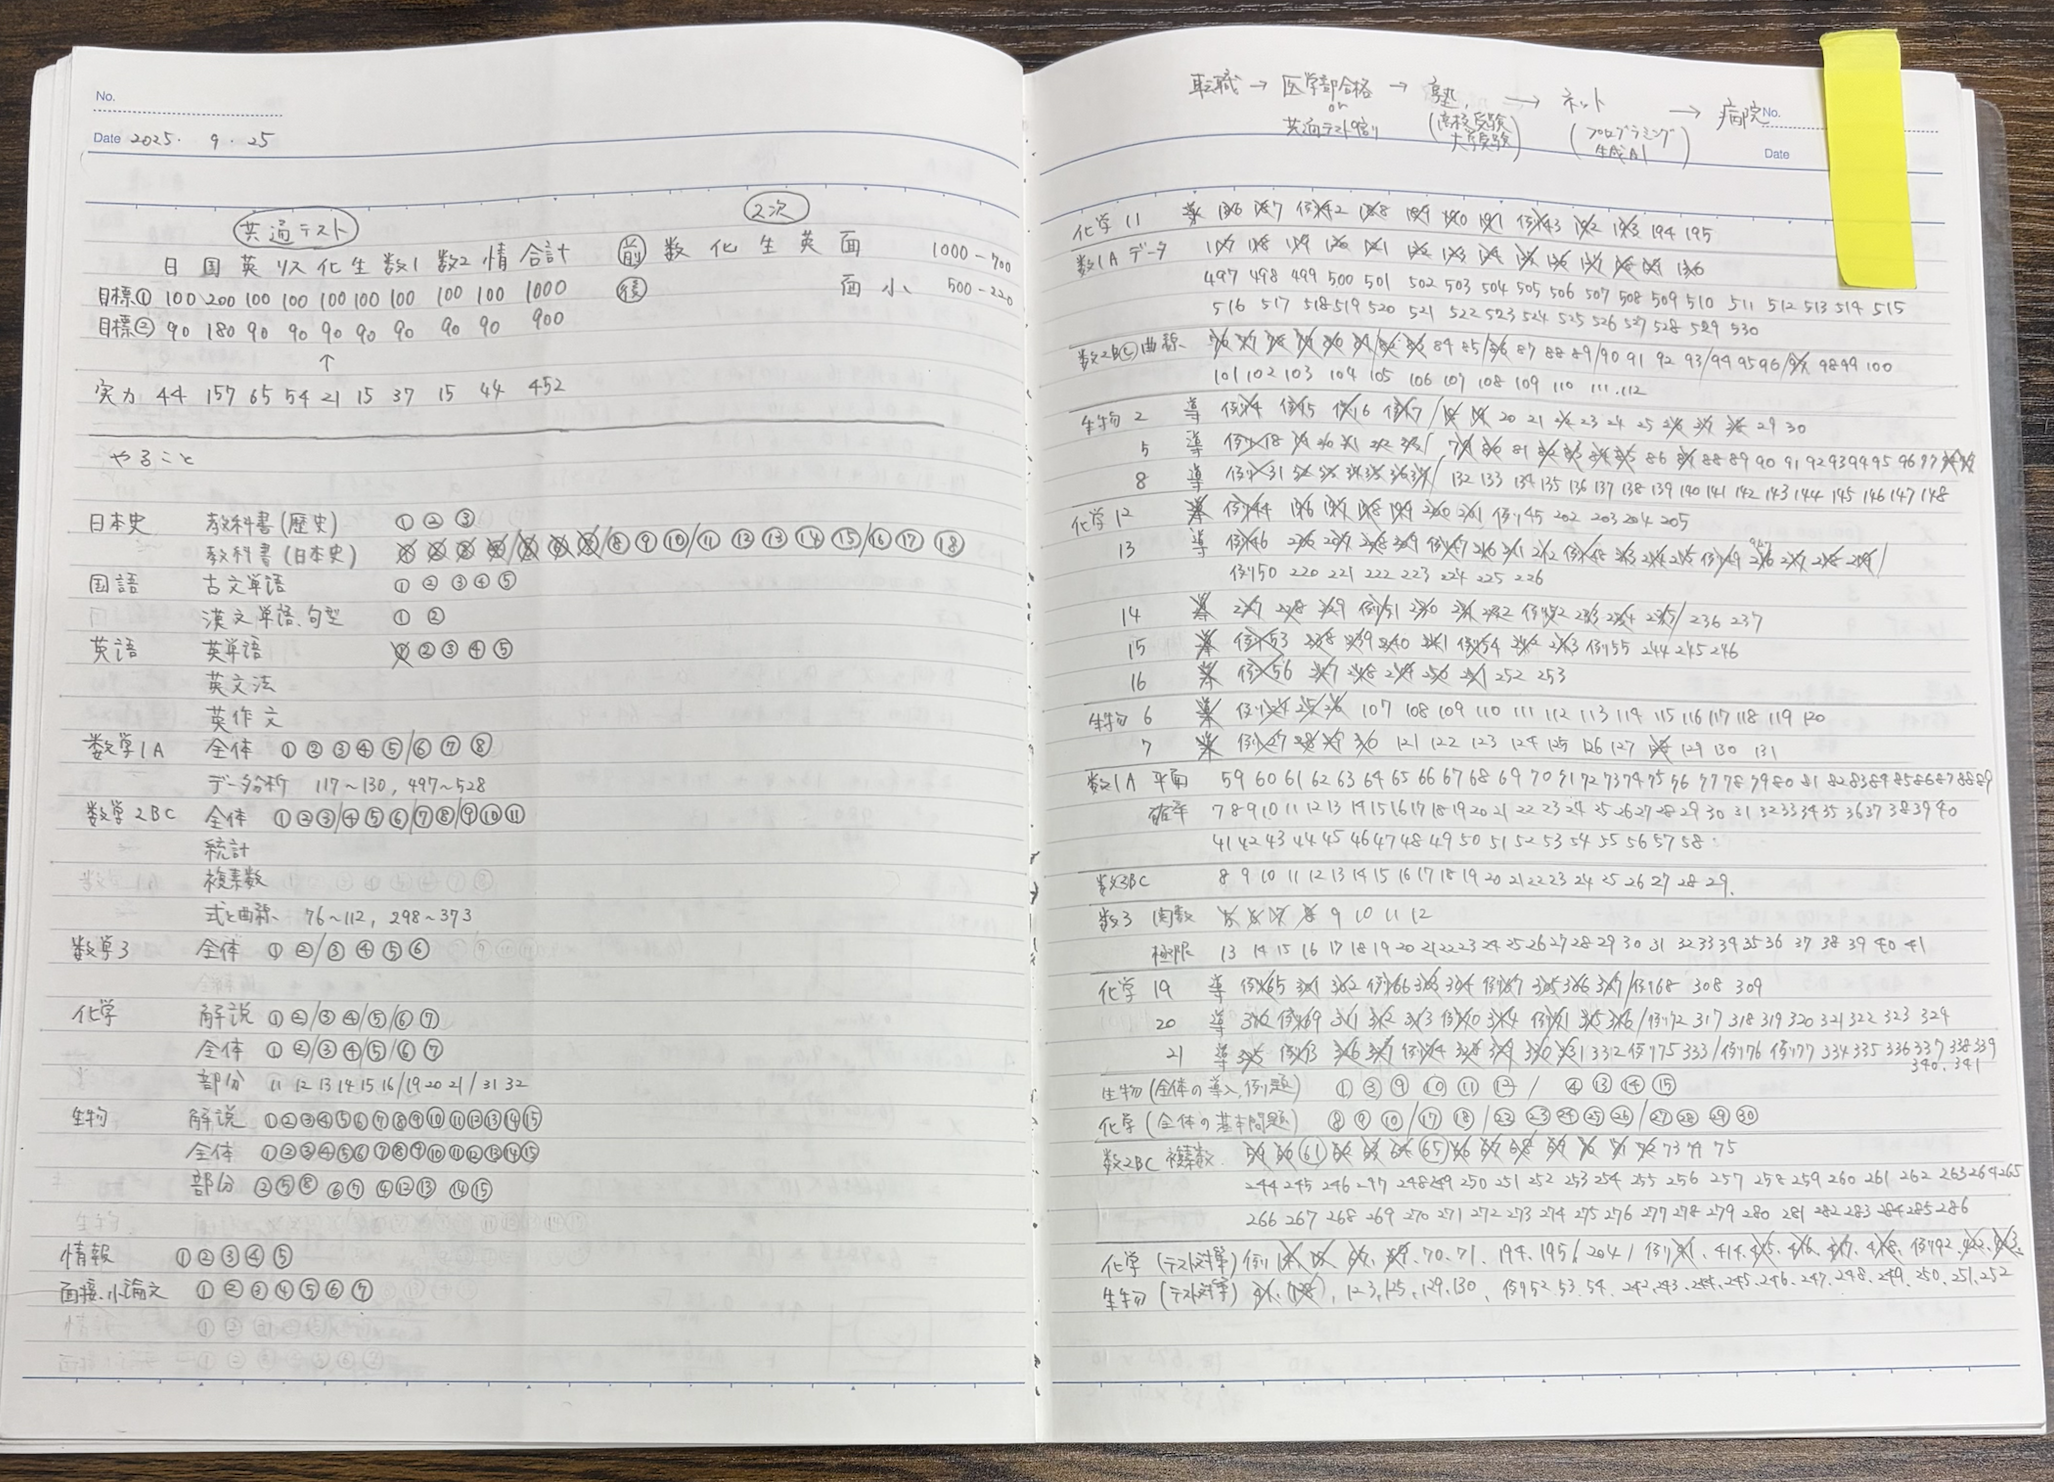 No.
Date 2025. 9. 25
共通テスト
2次
日 国 英 リス 化 生 数1 数2 情 合計
前 数 化 生 英 面 1000-700
目標① 100 200 100 100 100 100 100 100 100 1000
後 面 小 500-220
目標② 90 180 90 90 90 90 90 90 90 900
↑
実力 44 157 65 54 21 15 37 15 44 452
やること
日本史 教科書(歴史) ① ② ③
教科書(日本史) ⑧ ⑨ ⑩/⑪ ⑫ ⑬ ⑭ ⑮/⑯ ⑰ ⑱
国語 古文単語 ① ② ③ ④ ⑤
漢文単語、句型 ① ②
英語 英単語 ① ② ③ ④ ⑤
英文法
英作文
数学1A 全体 ① ② ③ ④ ⑤/⑥ ⑦ ⑧
データ分析 117~130, 497~528
数学2BC 全体 ① ② ③/④ ⑤ ⑥/⑦ ⑧/⑨ ⑩ ⑪
統計
複素数
式と曲線 76~112, 298~373
数学3 全体 ① ②/③ ④ ⑤ ⑥
化学 解説 ① ②/③ ④/⑤/⑥ ⑦
全体 ① ②/③ ④/⑤/⑥ ⑦
部分 11 12 13 14 15 16/19 20 21/31 32
生物 解説 ① ② ③ ④ ⑤ ⑥ ⑦ ⑧ ⑨ ⑩ ⑪ ⑫ ⑬ ⑭ ⑮
全体 ① ② ③ ④ ⑤ ⑥ ⑦ ⑧ ⑨ ⑩ ⑪ ⑫ ⑬ ⑭ ⑮
部分 ② ⑤ ⑧ ⑥ ⑦ ④ ⑫ ⑬ ⑭ ⑮
情報 ① ② ③ ④ ⑤
面接、小論文 ① ② ③ ④ ⑤ ⑥ ⑦
転職 → 医学部合格 → 塾, → ネット → 病院
or
共通テスト9割
(高校受験
大学受験)
(プログラミング
生成AI)
No.
Date
化学 11 導 186 187 例42 188 189 190 191 例43 192 193 194 195
数1A データ 117 118 119 120 121 122 123 124 125 126 127 128 129 130
497 498 499 500 501 502 503 504 505 506 507 508 509 510 511 512 513 514 515
516 517 518 519 520 521 522 523 524 525 526 527 528 529 530
数2BC 曲線 76 77 78 79 80 81/82 83 84 85/86 87 88 89/90 91 92 93/94 95 96/97 98 99 100
101 102 103 104 105 106 107 108 109 110 111 112
生物 2 導 例14 例15 例16 例17/18 19 20 21 22 23 24 25 26 27 28 29 30
5 導 例18 19 20 21 22 23/79 80 81 82 83 84 85 86 87 88 89 90 91 92 93 94 95 96 97 98 99
8 導 例31 32 33 34 35 36 37/132 133 134 135 136 137 138 139 140 141 142 143 144 145 146 147 148
化学 12 導 例44 196 197 198 199 200 201 例45 202 203 204 205
13 導 例46 206 207 208 209 例47 210 211 212 例48 213 214 215 例49 216 217 218 219/
例50 220 221 222 223 224 225 226
14 導 227 228 229 例51 230 231 232 例52 233 234 235/236 237
15 導 例53 238 239 240 241 例54 242 243 例55 244 245 246
16 導 例56 247 248 249 250 251 252 253
生物 6 導 例24 25 26 107 108 109 110 111 112 113 114 115 116 117 118 119 120
7 導 例27 28 29 30 121 122 123 124 125 126 127 128 129 130 131
数1A 平面 59 60 61 62 63 64 65 66 67 68 69 70 71 72 73 74 75 76 77 78 79 80 81 82 83 84 85 86 87 88 89
確率 7 8 9 10 11 12 13 14 15 16 17 18 19 20 21 22 23 24 25 26 27 28 29 30 31 32 33 34 35 36 37 38 39 40
41 42 43 44 45 46 47 48 49 50 51 52 53 54 55 56 57 58
数3BC 8 9 10 11 12 13 14 15 16 17 18 19 20 21 22 23 24 25 26 27 28 29
数3 関数 5 6 7 8 9 10 11 12
極限 13 14 15 16 17 18 19 20 21 22 23 24 25 26 27 28 29 30 31 32 33 34 35 36 37 38 39 40 41
化学 19 導 例65 301 302 例66 303 304 例67 305 306 307/例68 308 309
20 導 310 例69 311 312 313 例70 314 例71 315 316/例72 317 318 319 320 321 322 323 324
21 導 325 例73 326 327 例74 328 329 330 331 332 例75 333/例76 例77 334 335 336 337 338 339
340, 341
生物(全体の導入,例題) ① ③ ⑨ ⑩ ⑪ ⑫ / ④ ⑬ ⑭ ⑮
化学(全体の基本問題) ⑧ ⑨ ⑩/⑰ ⑱/㉒ ㉓ ㉔ ㉕ ㉖/㉗ ㉘ ㉙ ㉚
数2BC 複素数 59 60 61 62 63 64 65 66 67 68 69 70 71 72 73 74 75
244 245 246 247 248 249 250 251 252 253 254 255 256 257 258 259 260 261 262 263 264 265
266 267 268 269 270 271 272 273 274 275 276 277 278 279 280 281 282 283 284 285 286
化学 (テスト対策) 70. 71. 194. 195. 204
生物 (テスト対策) 123, 125, 129, 130, 例52. 53. 54. 242. 243. 244. 245. 246. 247. 248. 249. 250. 251. 252